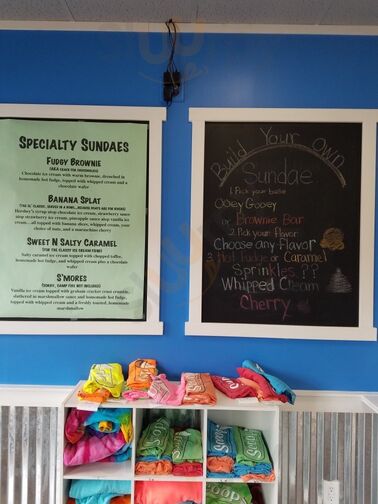 SPECIALTY SUNDAES
FUDGY BROWNIE
Chocolate ice cream with warm brownie, drenched in
homemade hot fudge, topped with whipped cream and a
chocolate wafer
BANANA SPLAT
Hershey's syrup atop chocolate ice cream, strawberry sauce
atop strawberry ice cream, pineapple sauce atop vanilla ice
cream... all topped with banana slices, whipped cream, your
choice of nuts, and a maraschino cherry
SWEET N SALTY CARAMEL
(FOR THE CLASSY ICE CREAM FIEND)
Salty caramel ice cream topped with chopped toffee,
homemade hot fudge, and whipped cream plus a chocolate
wafer
S'MORES
(SORRY, CAMP FIRE NOT INCLUDED)
Vanilla ice cream topped with graham cracker crumbs,
slathered in marshmallow sauce and homemade hot fudge,
topped with whipped cream and a freshly toasted, homemade
marshmallow
Build Your Own
Sundae
1. Pick your base
Ooey Gooey
or Brownie Bar
2. Pick your flavor
Choose any Flavor
3. Hot Fudge or Caramel
Sprinkles ??
Whipped Cream
Cherry
Scoops